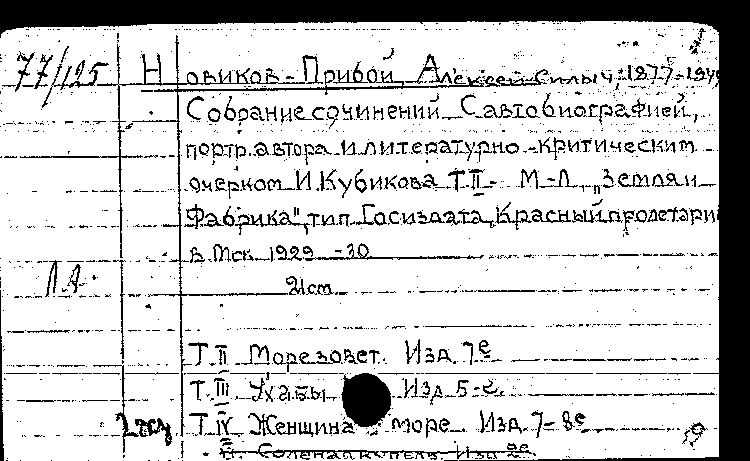 77/125 Новиков-Прибой, Алексей Силыч, 1877-194
Собрание сочинений С автобиографией,
портр. автора и литературно-критическим
очерком И. Кубикова Т. II- М-Л, "Земля и
Фабрика", тип. Госиздата "Красный пролетарий
в Мск 1929 -30
21 cm
Т. II Море зовет. Изд. 7е
Т. III. Ухабы Изд 5-е.
Т. IV Женщина в море. Изд. 7-8е
Соленая купель. Изд 2е.